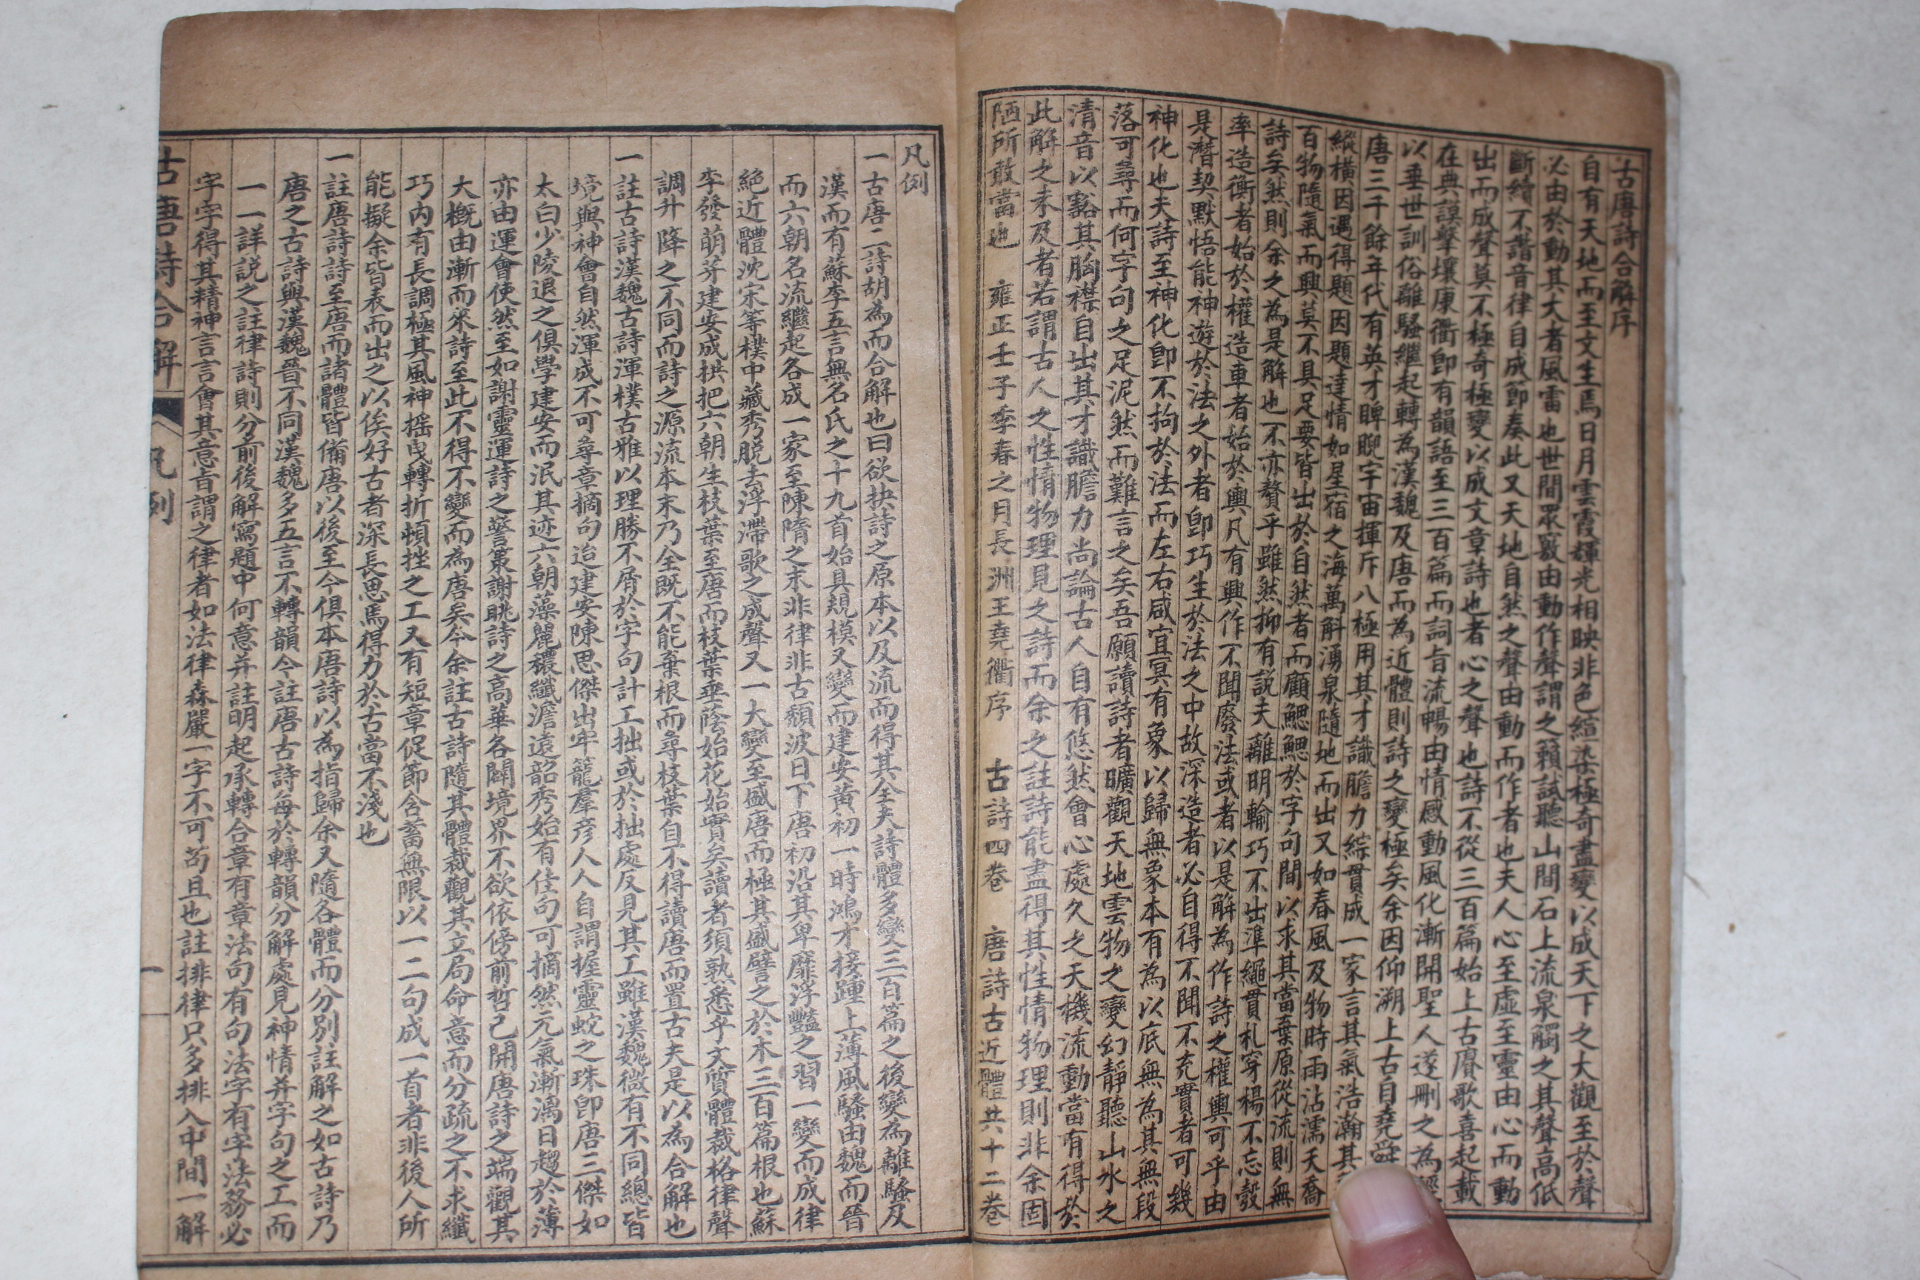 古唐詩合解序
自有天地而至文生焉日月雲霞輝光相映非色繪染極奇盡變以成天下之大觀至於聲
必由於動其大者風雷也世間眾竅由動作聲謂之籟試聽山間石上流泉觸之其聲高低
斷續不諧音律自成節奏此又天地自然之聲由動而作者也夫人心至虛至靈由心而動
出而成聲莫不極奇極變以成文章詩也者心之聲也詩不從三百篇始上古賡歌喜起載
在典謨擊壤康衢卽有韻語至三百篇而詞旨流暢由情感動風化漸開聖人遂刪之為經
以垂世訓俗離騷繼起轉為漢魏及唐而為近體則詩之變極矣余因仰溯上古自堯舜
唐三千餘年代有英才睥睨宇宙揮斥八極用其才識膽力綜貫成一家言其氣浩瀚其
縱橫因遇得題因題達情如星宿之海萬斛湧泉隨地而出又如春風及物時雨沾濡天喬
百物隨氣而興莫不具足要皆出於自然者而顧鰓鰓於字句間以求其當棄原從流則無
詩矣然則余之為是解也不亦贅乎雖然抑有說夫離明輸巧不出準繩貫札穿楊不忘彀
率造衡者始於權造車者始於輿凡有興作不聞廢法或者以是解為作詩之權輿可乎由
是潛契默悟能神遊於法之外者卽巧生於法之中故深造者必自得不聞不充實者可幾
神化也夫詩至神化卽不拘於法而左右咸宜冥有象以歸無象本有為以底無為其無段
落可尋而何字句之足泥然而難言之矣吾願讀詩者曠觀天地雲物之變幻靜聽山水之
清音以豁其胸襟自出其才識膽力尚論古人自有悠然會心處久之天機流動當有得於
此解之未及者若謂古人之性情物理見之詩而余之註詩能盡得其性情物理則非余固
陋所敢當也　雍正壬子季春之月長洲王堯衢序　古詩四卷　唐詩古近體共十二卷
凡例
一古唐二詩胡為而合解也曰欲抉詩之原本以及流而得其全夫詩體多變三百篇之後變為離騷及
漢而有蘇李五言無名氏之十九首始具規模又變而建安黃初一時鴻才接踵上薄風騷由魏而晉
而六朝名流繼起各成一家至陳隋之末非律非古頹波日下唐初沿其卑靡浮豔之習一變而成律
絕近體沈宋等樸中藏秀脫去浮滯歌之成聲又一大變至盛唐而極其盛譬之於木三百篇根也蘇
李發萌芽建安成拱把六朝生枝葉至唐而枝葉垂蔭始花始實矣讀者須熟悉乎文質體裁格律聲
調升降之不同而詩之源流本末乃全既不能棄根而尋枝葉自不得讀唐而置古夫是以為合解也
一註古詩漢魏古詩渾樸古雅以理勝不屑於字句計工拙或於拙處反見其工雖漢魏微有不同總皆
境與神會自然渾成不可尋章摘句迨建安陳思傑出牢籠羣彥人人自謂握靈蛇之珠卽唐三傑如
太白少陵退之俱學建安而泯其迹六朝藻麗穠纖澹遠韶秀始有佳句可摘然元氣漸漓日趨於薄
亦由運會使然至如謝靈運詩之警策謝眺詩之高華各闢境界不欲依傍前哲已開唐詩之端觀其
大概由漸而來詩至此不得不變而為唐矣今余註古詩隨其體裁觀其立局命意而分疏之不求纖
巧內有長調極其風神搖曳轉折頓挫之工又有短章促節含蓄無限以一二句成一首者非後人所
能擬余皆表而出之以俟好古者深長思焉得力於古當不淺也
一註唐詩詩至唐而諸體皆備唐以後至今俱本唐詩以為指歸余又隨各體而分別註解之如古詩乃
唐之古詩與漢魏晉不同漢魏多五言不轉韻今註唐古詩每於轉韻分解處見神情并字句之工而
一一詳說之註律詩則分前後解寫題中何意并註明起承轉合章有章法句有句法字有字法務必
字字得其精神言言會其意旨謂之律者如法律森嚴一字不可苟且也註排律只多排入中間一解
古唐詩合解　凡例　一